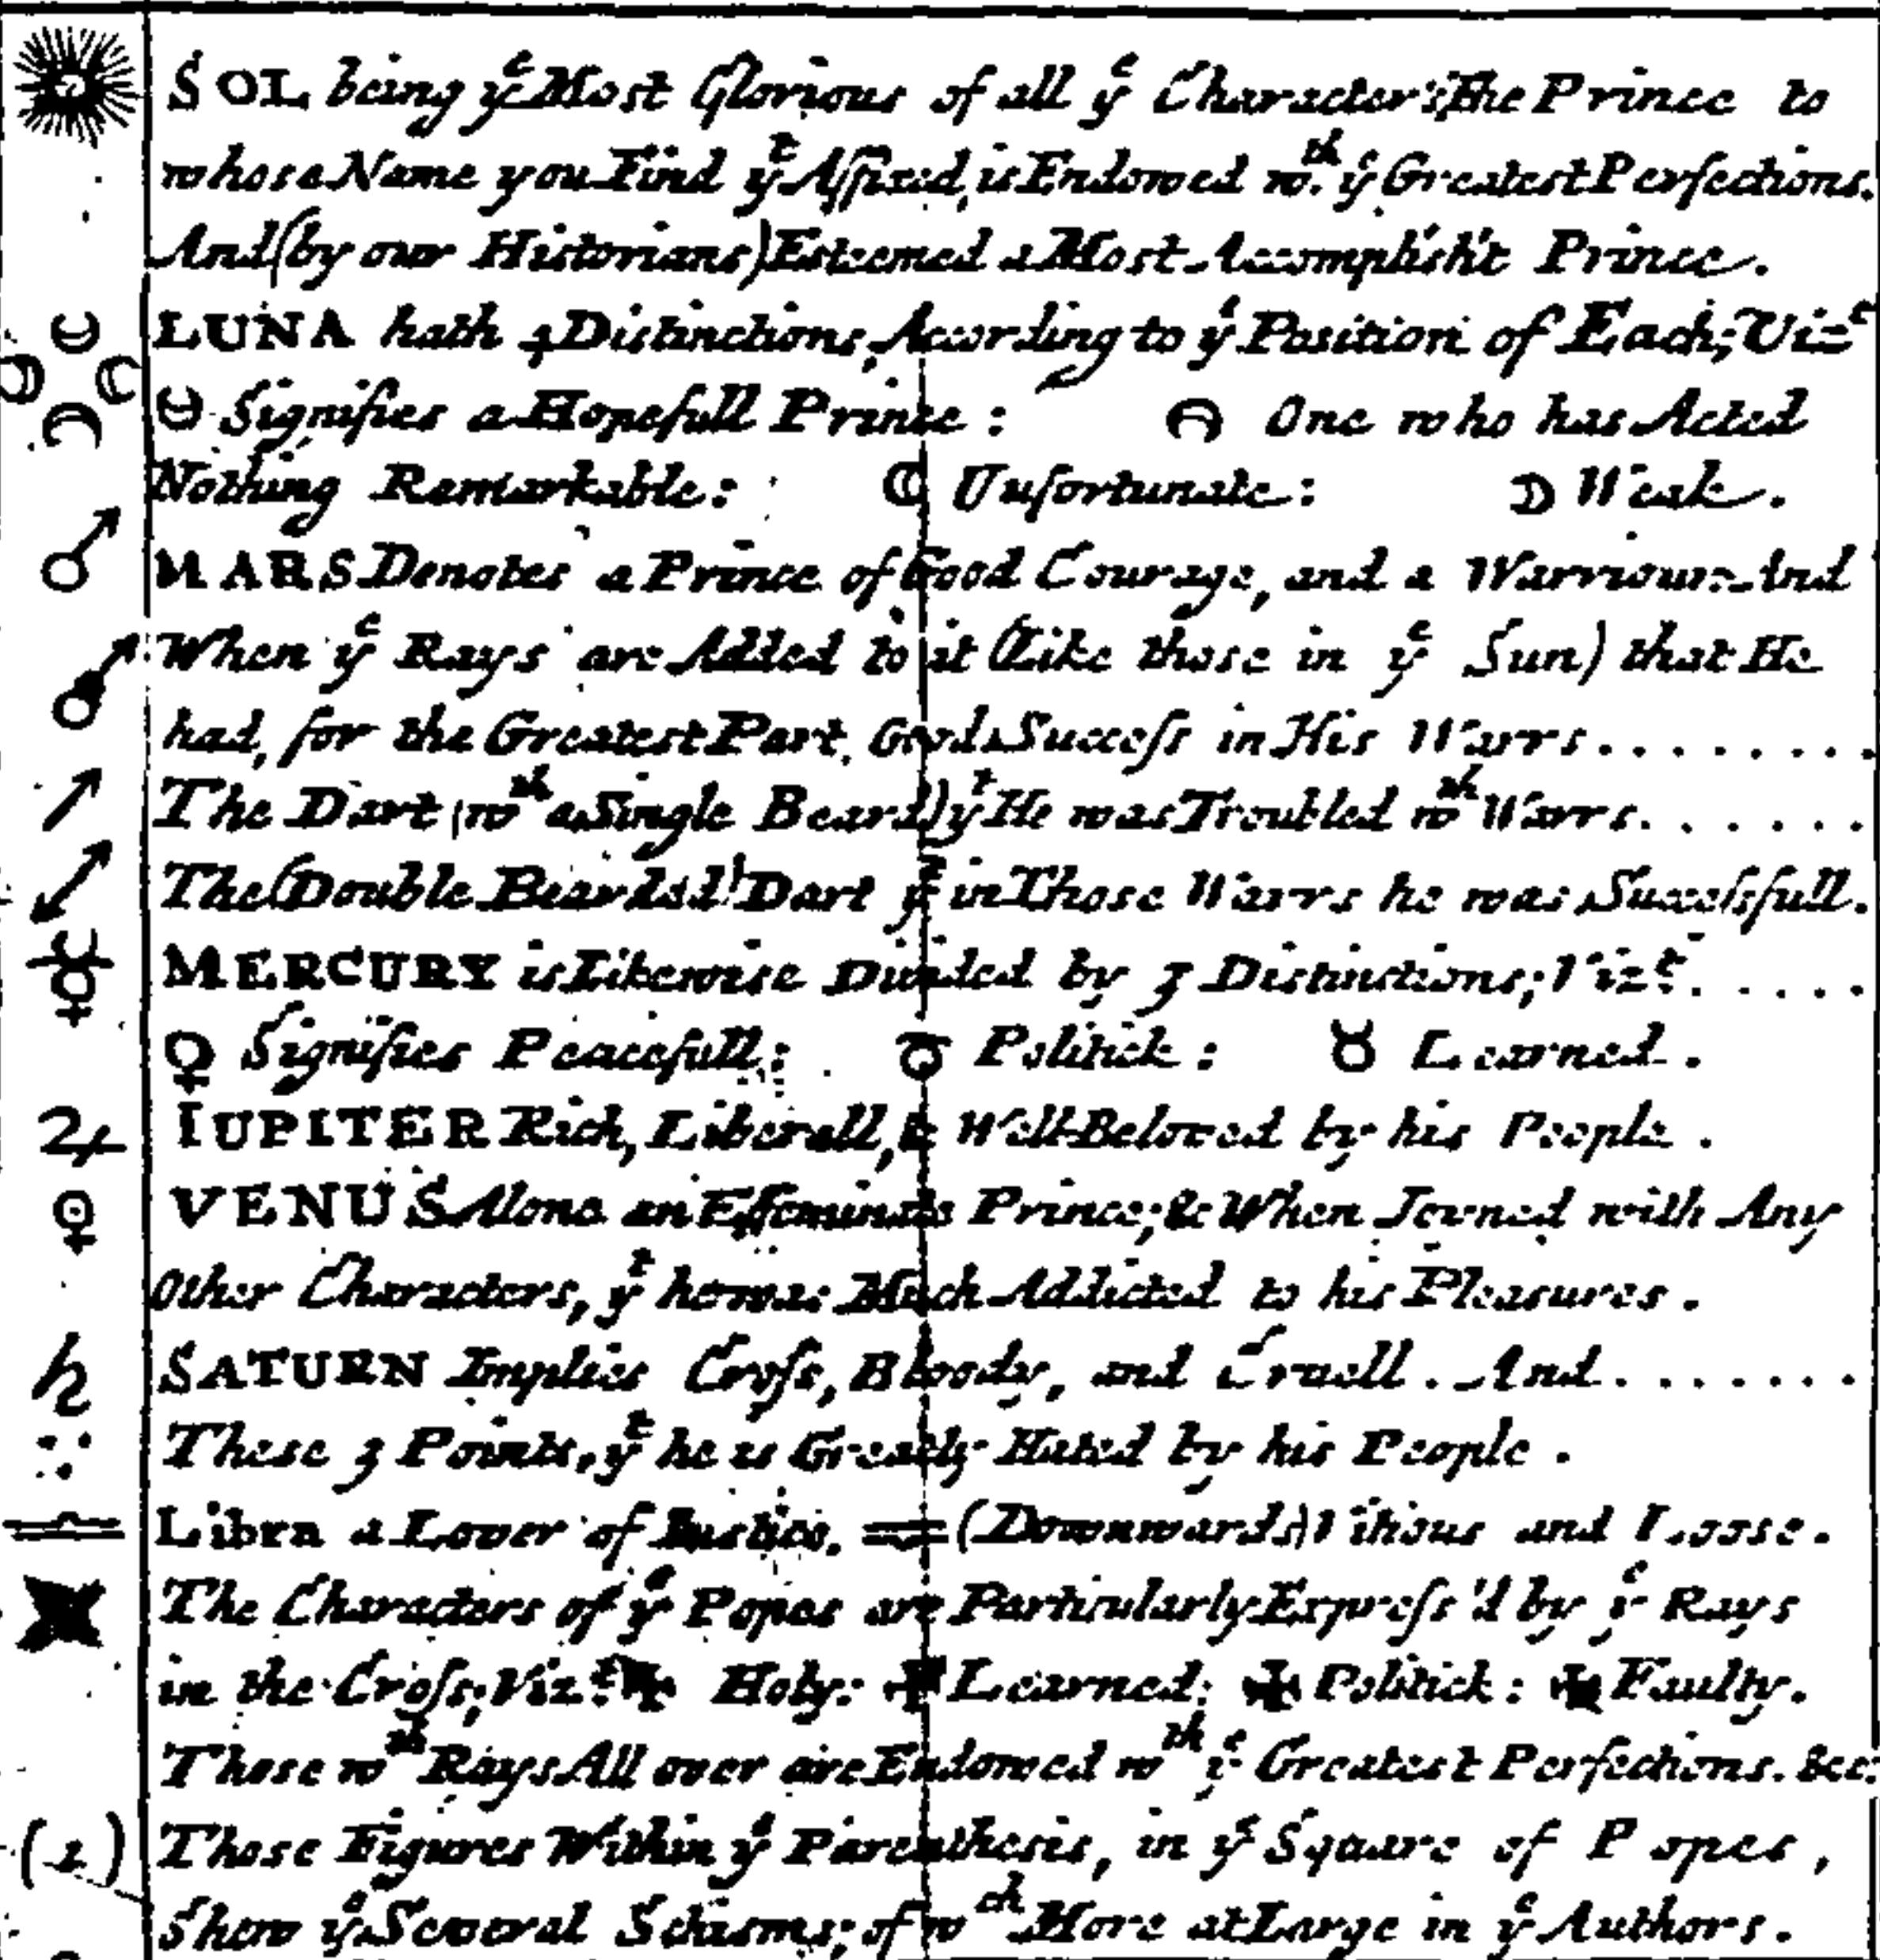 SOL being yᵉ Most Glorious of all yᵉ Characters; The Prince to
whose Name you Find yᵗ Affixed, is Endowed wᵗʰ yᵉ Greatest Perfections.
And (by our Historians) Esteemed a Most Accomplish't Prince.
LUNA hath 4 Distinctions, According to yᵉ Position of Each; Vizᵗ
Signifies a Hopefull Prince: One who has Acted
Nothing Remarkable: ☾ Unfortunate: ☽ Weak.
♂ MARS Denotes a Prince of Good Courage, and a Warriour: And
When yᵉ Rays are Added to it (Like those in yᵉ Sun) that He
had, for the Greatest Part, Good Success in His Warrs........
The Dart (wᵗʰ a Single Beard) yᵗ He was Troubled wᵗʰ Warrs......
The (Double Bearded) Dart yᵗ in Those Warrs he was Successfull.
MERCURY is Likewise Divided by 3 Distinctions; Vizᵗ.....
♀ Signifies Peacefull: Politick: ♉ Learned.
♃ IUPITER Rich, Liberall, & Well-Beloved by his People.
♀ VENUS Alone an Effeminate Prince; & When Joyned with Any
Other Characters, yᵗ he was Much Addicted to his Pleasures.
♄ SATURN Implies Cross, Bloody, and Cruell. And.......
These 3 Points, yᵗ he is Greatly Hated by his People.
♎ Libra a Lover of Iustice. (Downwards) Vitious and Loose.
The Characters of yᵉ Popes are Particularly Express'd by yᵉ Rays
in the Cross; Vizᵗ Holy: Learned: Politick: Faulty.
Those wᵗʰ Rays All over are Endowed wᵗʰ yᵉ Greatest Perfections. &c:
(1) Those Figures Within yᵉ Parenthesis, in yᵉ Square of Popes,
Shew yᵉ Several Schisms; of wᶜʰ More at Large in yᵉ Authors.